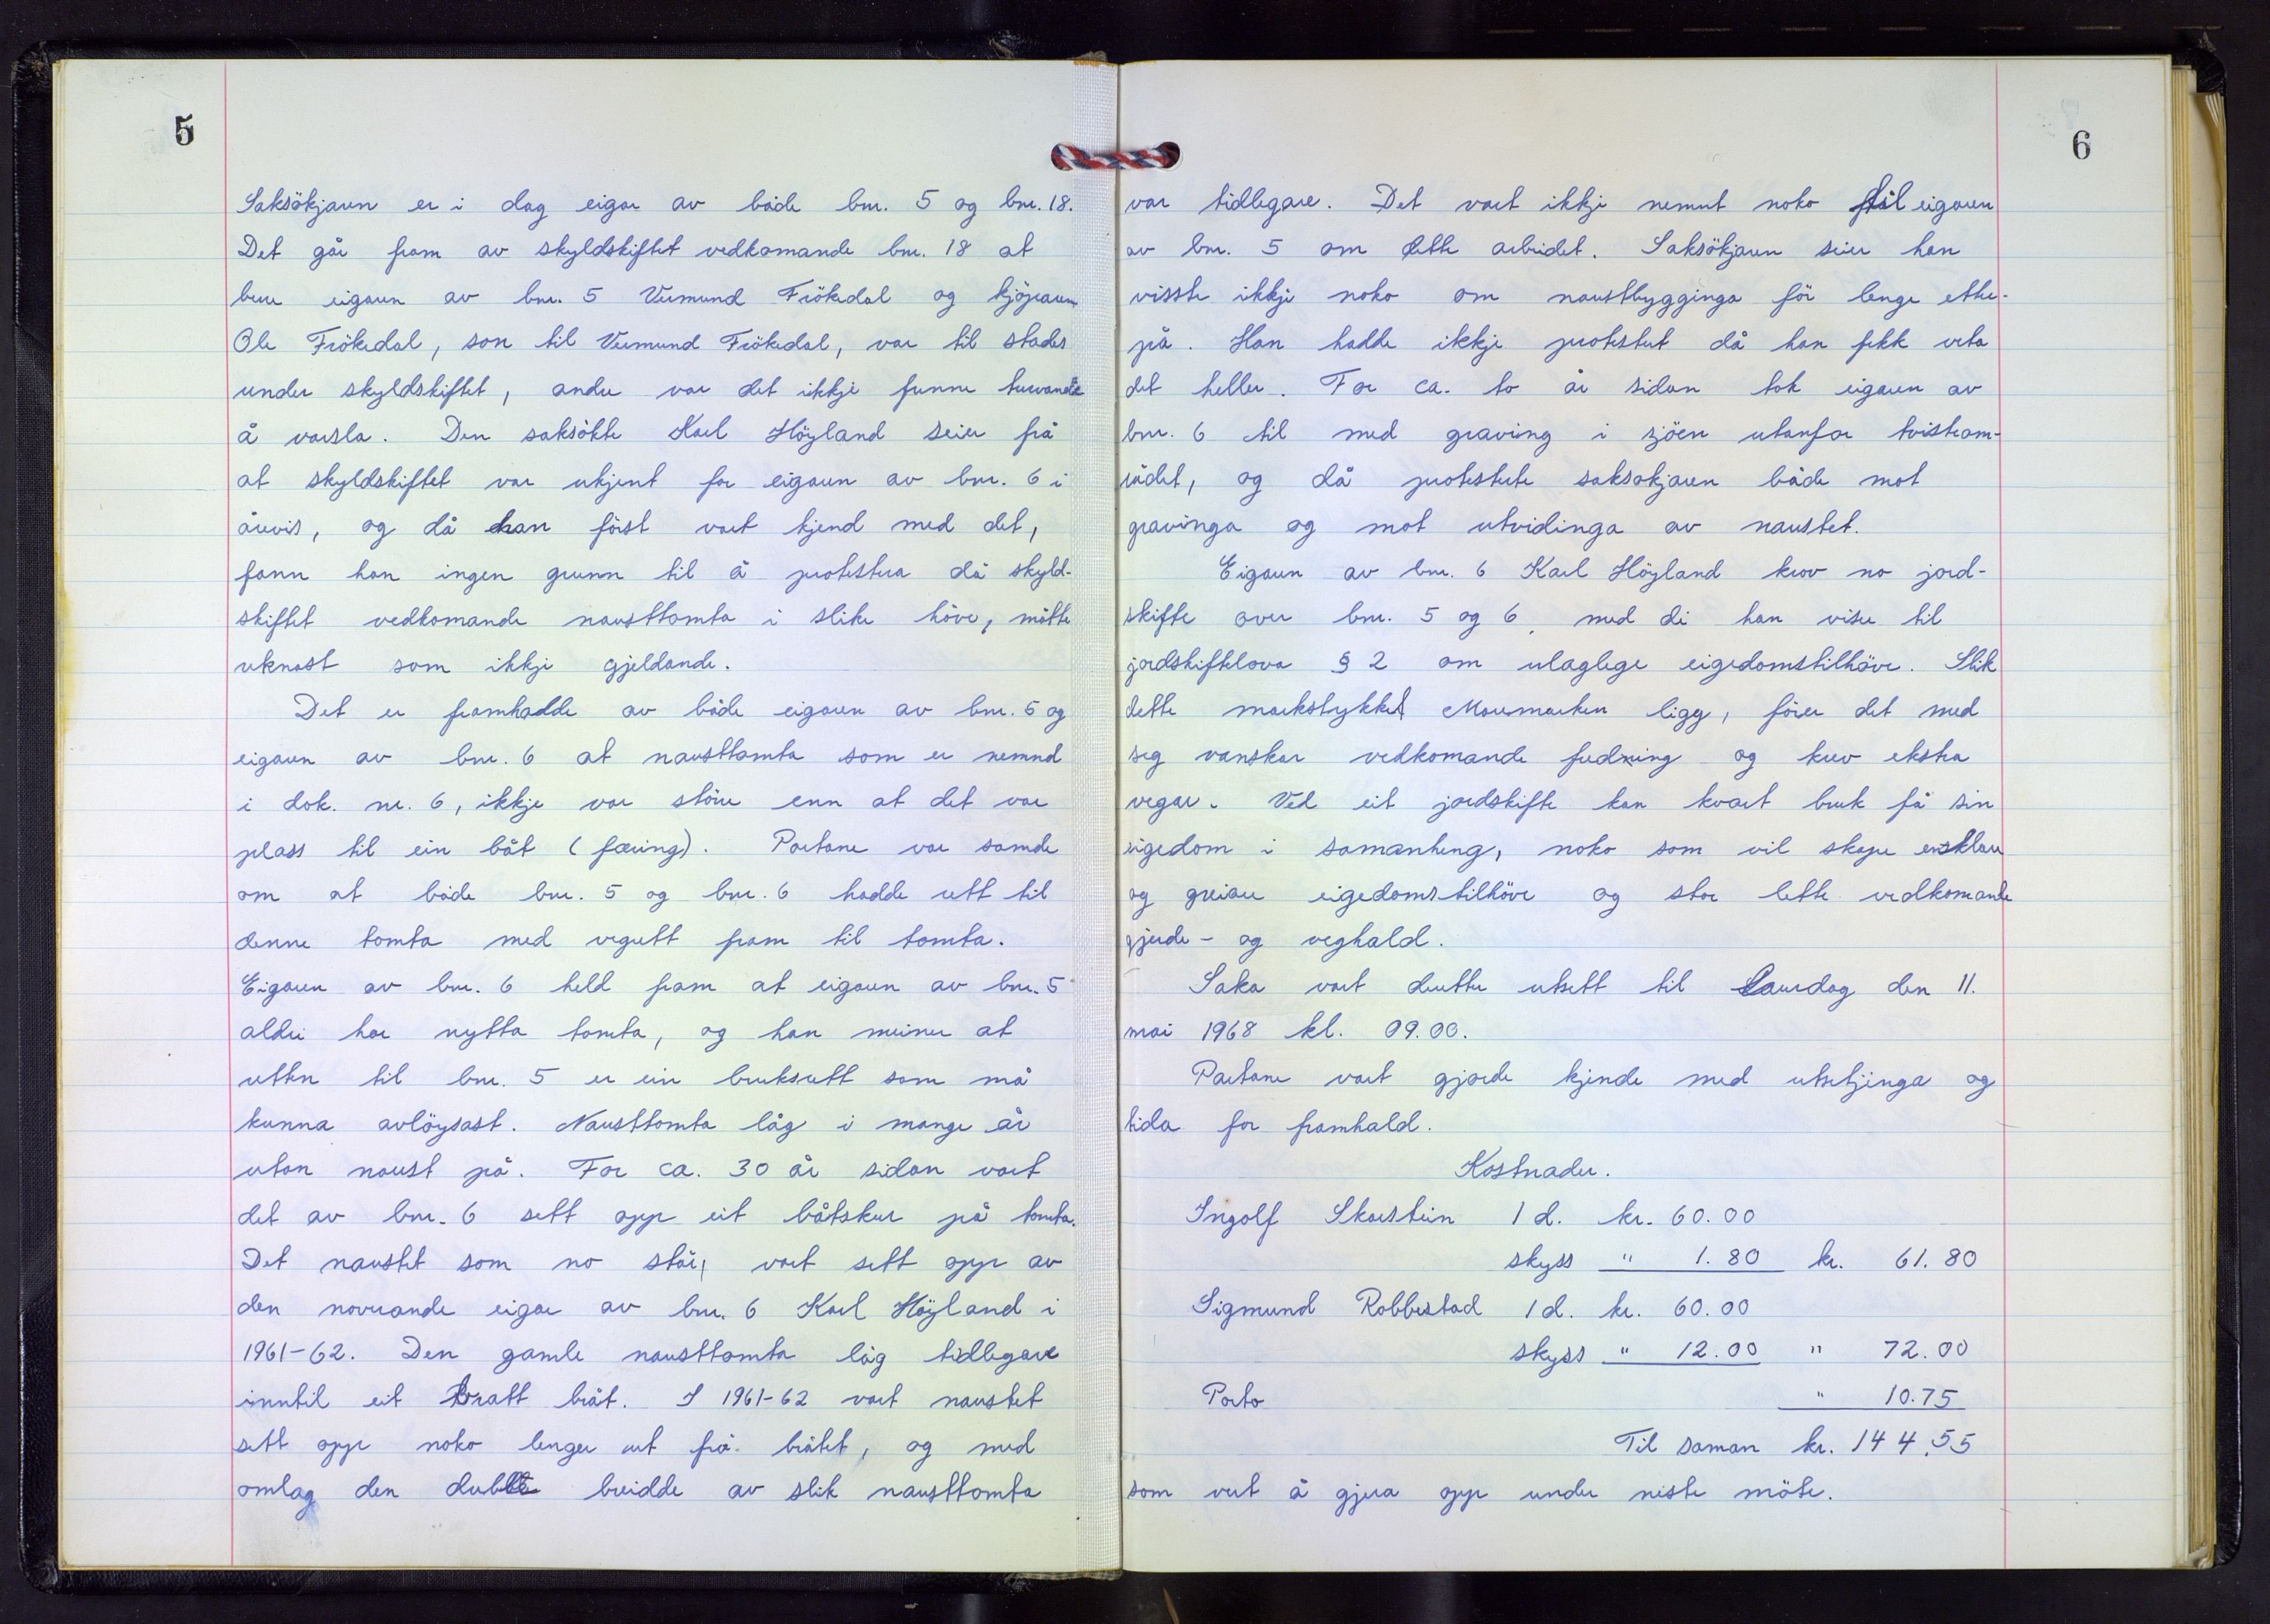 5
Saksökjaren er i dag eigar av både bnr. 5 og bnr. 18.
Det går fram av skyldskiftet vedkomande bnr. 18 at
bere eigaren av bnr. 5 Vermund Frökedal og kjöparen
Ole Frökedal, son til Vermund Frökedal, var til stades
under skyldskiftet, andre var det ikkje funne turvande
å varsla. Den saksökte Karl Höyland seier frå
at skyldskiftet var ukjent for eigaren av bnr. 6 i
årevis, og då han först vart kjend med det,
fann han ingen grunn til å protestera då skyld-
skiftet vedkomande nausttomta i slike höve, måtte
reknast som ikkje gjeldande.
Det er framhadde av både eigaren av bnr. 5 og
eigaren av bnr. 6 at nausttomta som er nemnd
i dok. nr. 6, ikkje var störe enn at det var
plass til ein båt (færing). Partane var samde
om at både bnr. 5 og bnr. 6 hadde rett til
denne tomta med vegrett fram til tomta.
Eigaren av bnr. 6 held fram at eigaren av bnr. 5
aldri har nytta tomta, og han meiner at
retten til bnr. 5 er ein bruksrett som må
kunna avlöysast. Nausttomta låg i mange år
utan naust på. For ca. 30 år sidan vart
det av bnr. 6 sett opp eit båtskur på tomta.
Det naustet som no står, vart sett opp av
den noverande eigar av bnr. 6 Karl Höyland i
1961-62. Den gamle nausttomta låg tidlegare
inntil eit bratt bråt. I 1961-62 vart naustet
sett opp noko lenger ut frå bråtet, og med
omlag den dubble breidde av slik nausttomta
6
var tidlegare. Det vart ikkje nemnt noko til eigaren
av bnr. 5 om dette arbeidet. Saksökjaren seier han
visste ikkje noko om naustbygginga för lenge etter-
på. Han hadde ikkje protestert då han fekk veta
det heller. For ca. to år sidan tok eigaren av
bnr. 6 til med graving i sjöen utanfor tvisteom-
rådet, og då protesterte saksøkjaren både mot
gravinga og mot utvidinga av naustet.
Eigaren av bnr. 6 Karl Höyland krov no jord-
skifte over bnr. 5 og 6, med di han viser til
jordskiftelova § 2 om ulaglege eigedomstilhöve. Slik
dette markstykket Maremarken ligg, förer det med
seg vanskar vedkomande fredning og krev ekstra
vegar. Ved eit jordskifte kan kvart bruk få sin
eigedom i samanheng, noko som vil skape ensklare
og greiare eigedomstilhöve og stor lette vedkomande
gjerde- og veghald.
Saka vart deretter utsett til laurdag den 11.
mai 1968 kl. 09.00.
Partane vart gjorde kjende med utsetjinga og
tida for framhald.
Kostnader.
Ingolf Skarstein 1 d. kr. 60.00
skyss " 1.80 kr. 61.80
Sigmund Robbestad 1 d. kr. 60.00
skyss " 12.00 " 72.00
Porto " 10.75
Til saman kr. 144.55
som vert å gjera opp under neste möte.